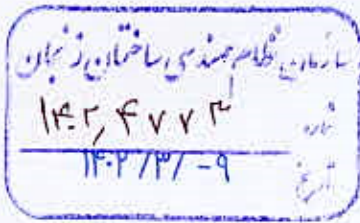 سازمان نظام مهندسی ساختمان زنجان
شماره ۱۴۰۲,۴۷۷۳
تاریخ ۱۴۰۲/۳/۰۹